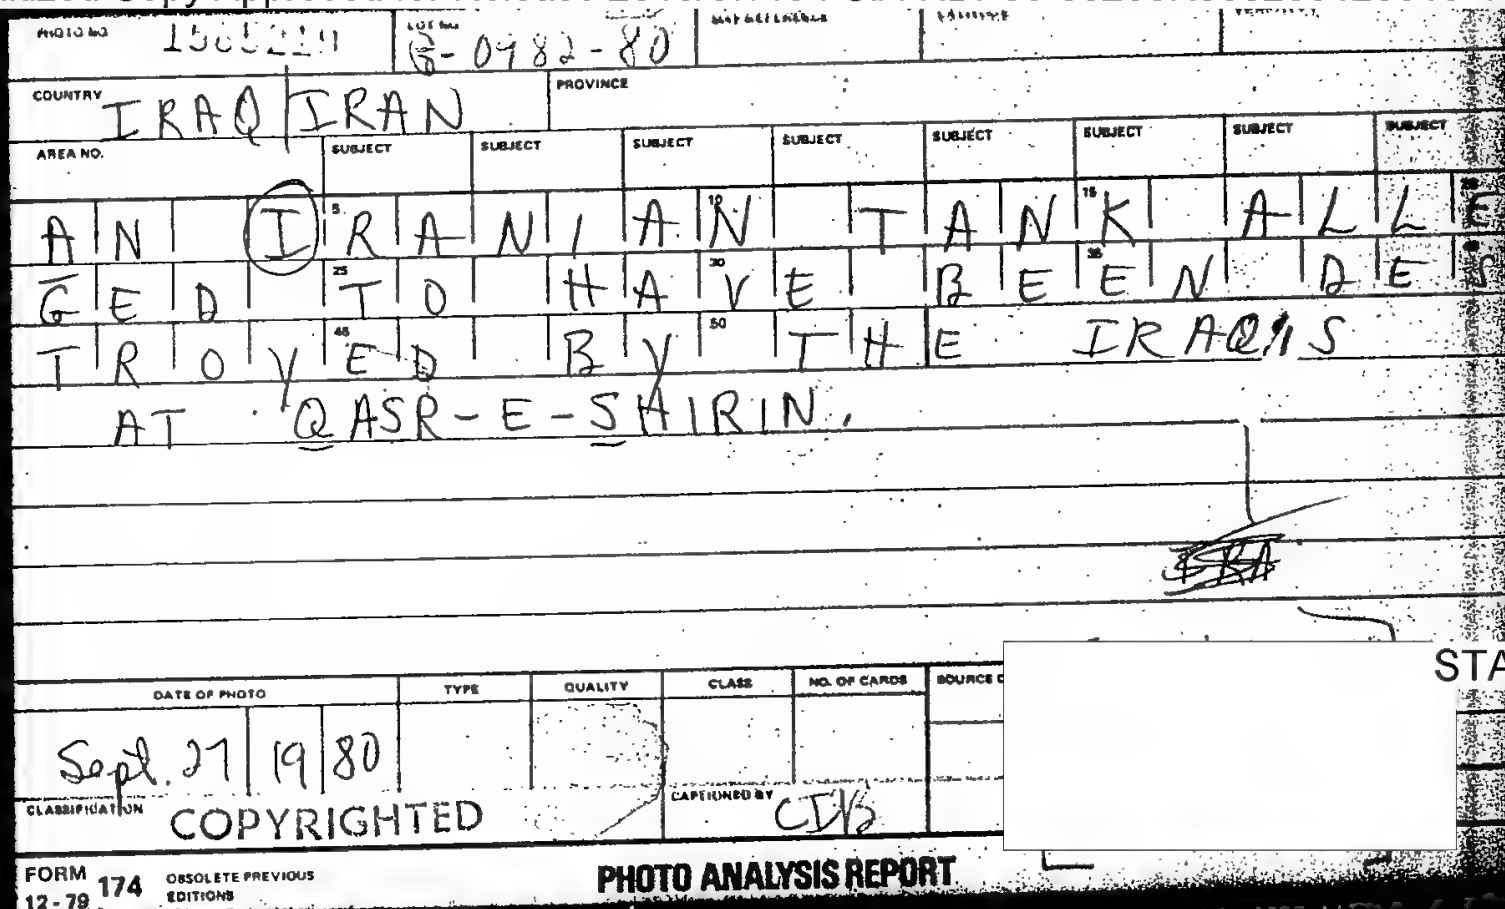 PHOTO NO. LOT No. G-0982-80 MAP REFERENCE
COUNTRY IRAQ/IRAN PROVINCE
AREA NO. SUBJECT SUBJECT SUBJECT SUBJECT SUBJECT SUBJECT SUBJECT SUBJECT
AN IRANIAN TANK ALLE
5 10 15 20
GED TO HAVE BEEN DES
25 30 35
TROYED BY THE IRAQIS
45 50
AT QASR-E-SHIRIN.
STA
DATE OF PHOTO TYPE QUALITY CLASS NO. OF CARDS SOURCE
Sept. 27 19 80
CLASSIFICATION COPYRIGHTED CAPTIONED BY CDB
FORM 12-79 174 OBSOLETE PREVIOUS EDITIONS PHOTO ANALYSIS REPORT